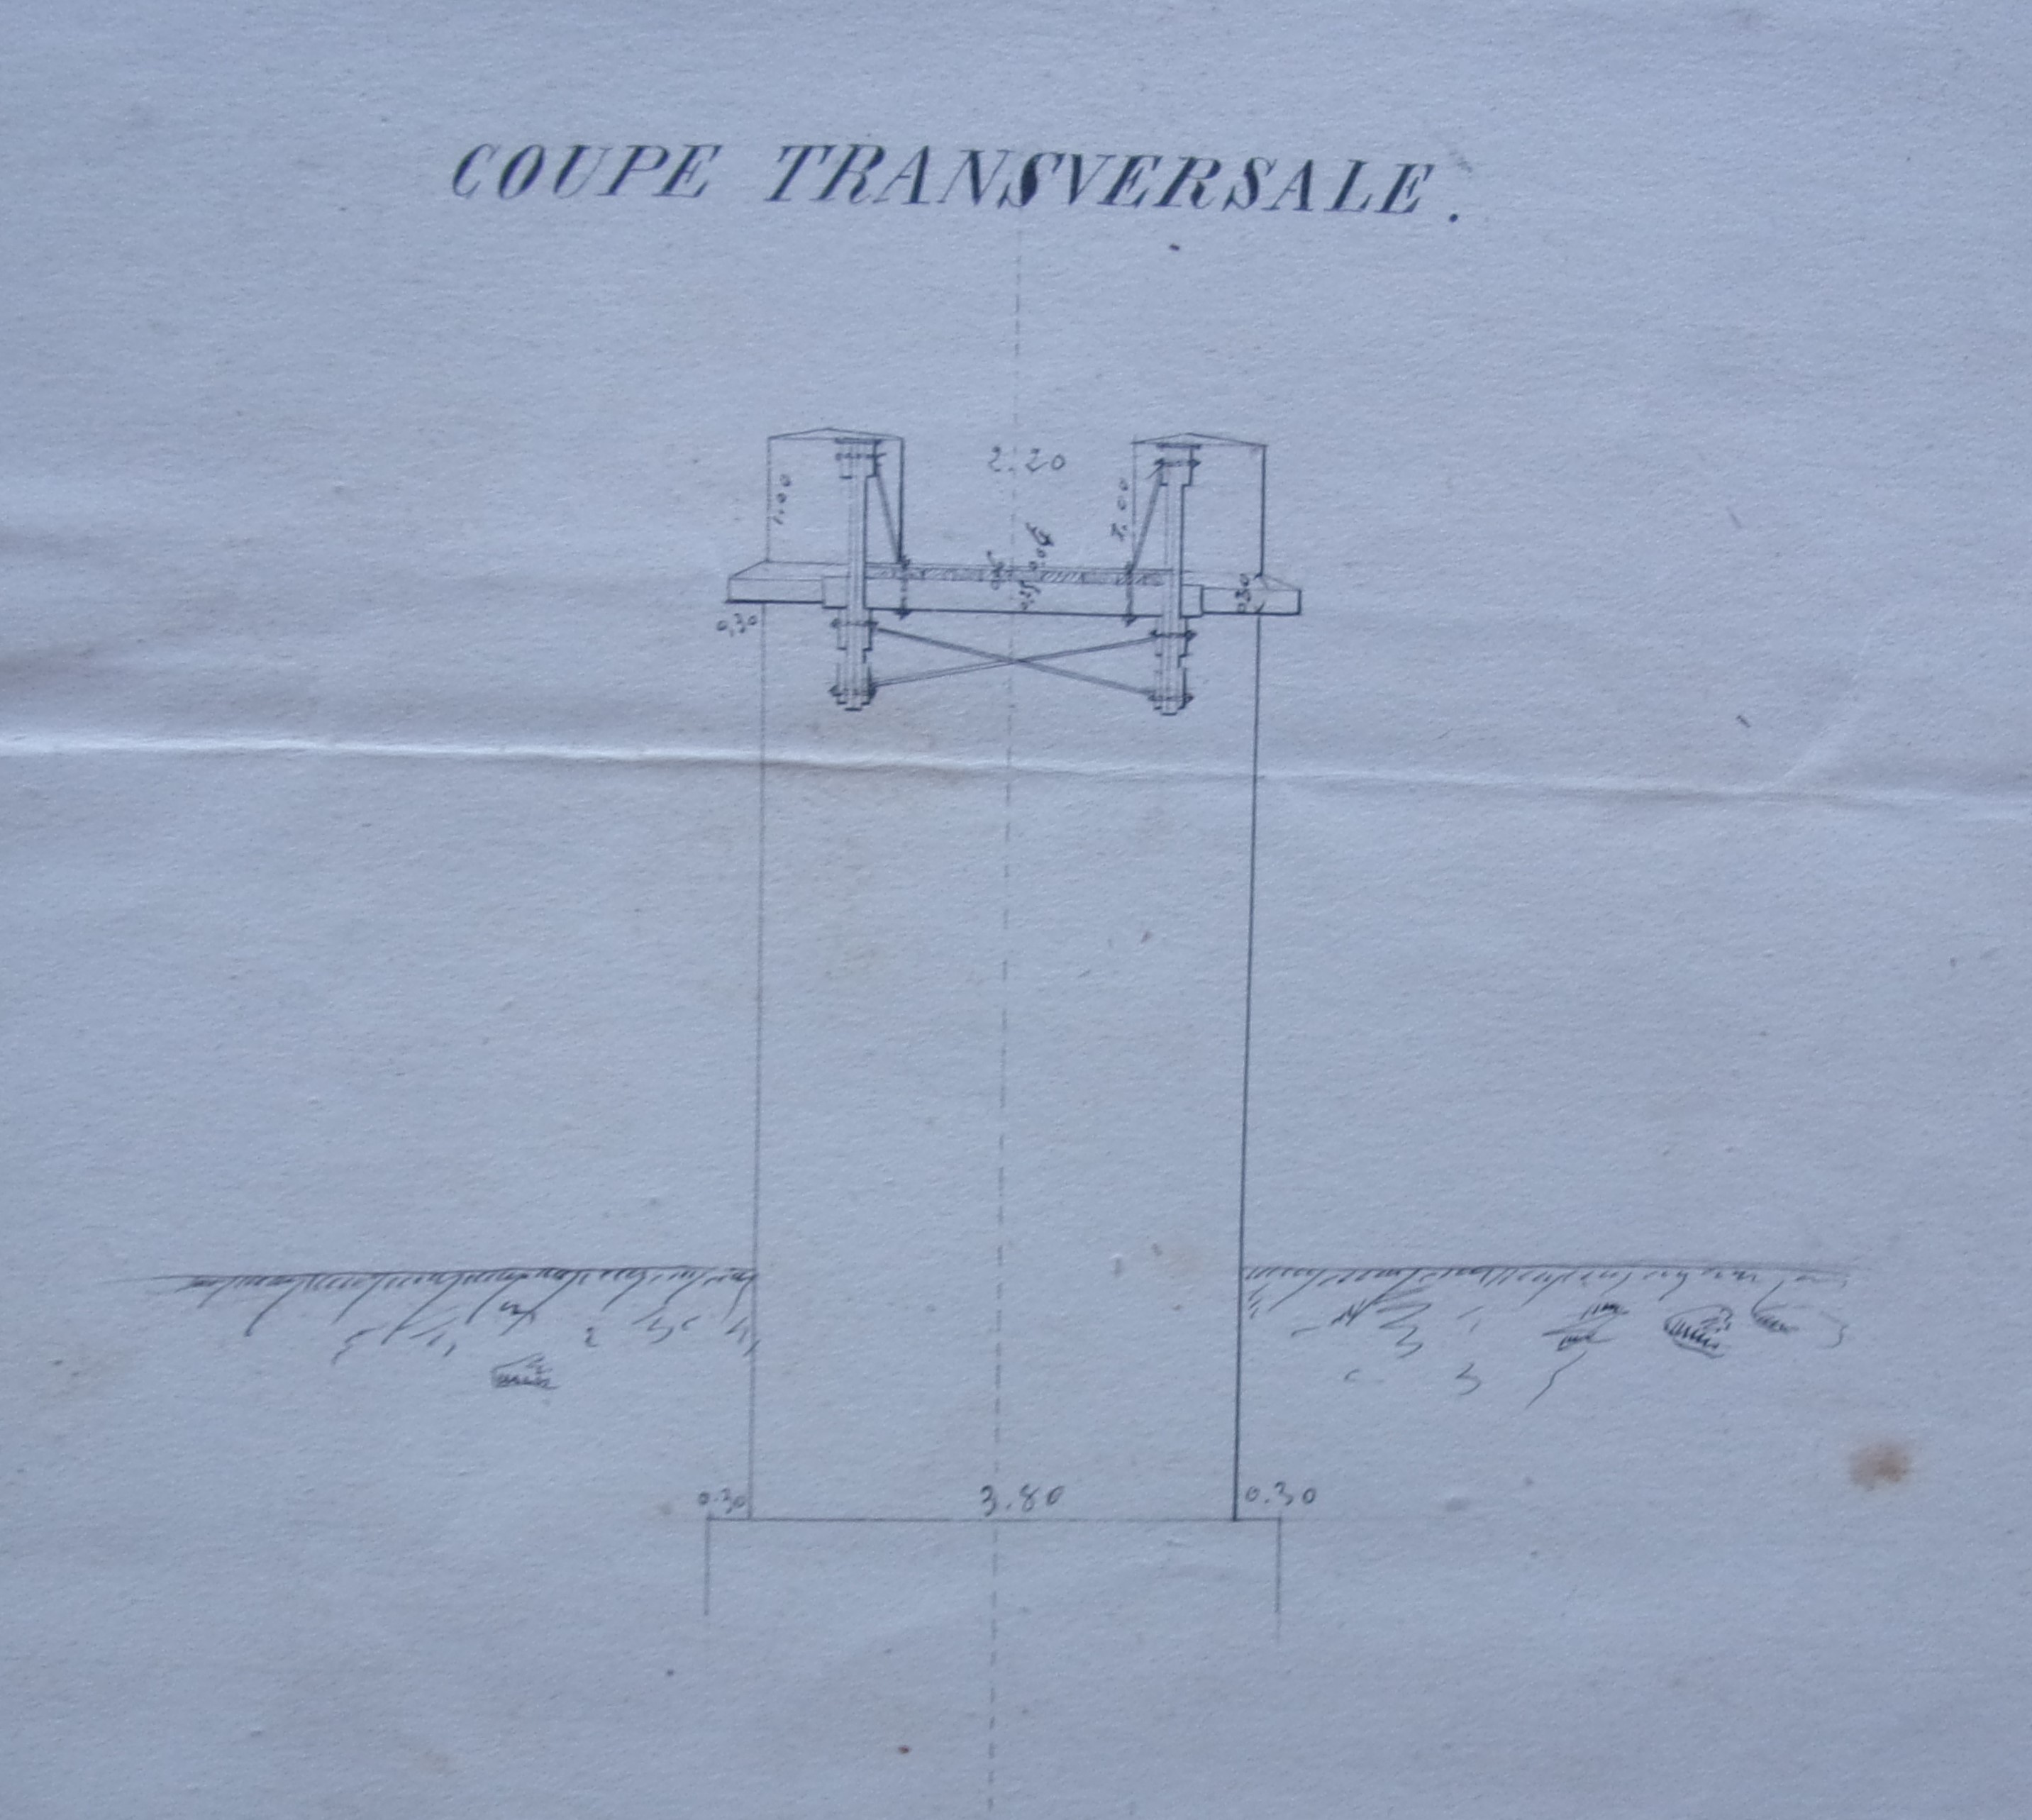 COUPE TRANSVERSALE.
2.20
1.00
1.00
0,30
0,30
0.30 3.80 0.30